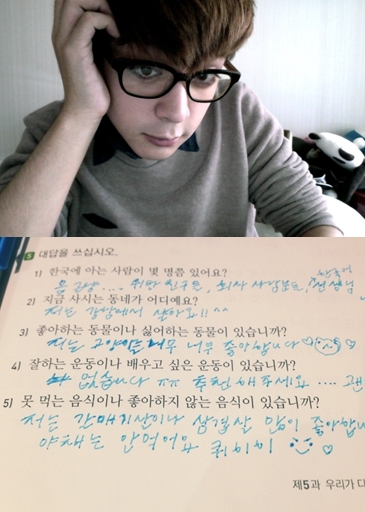 5 대답을 쓰십시오.
1) 한국에 아는 사람이 몇 명쯤 있어요?
친구들, 회사 사람들, 한국어 선생님
2) 지금 사시는 동네가 어디예요?
저는 강남에서 살아요!! ^^
3) 좋아하는 동물이나 싫어하는 동물이 있습니까?
저는 너무 좋아합니다
4) 잘하는 운동이나 배우고 싶은 운동이 있습니까?
없습니다 ㅠㅠ 추천해주세요 ....
5) 못 먹는 음식이나 좋아하지 않는 음식이 있습니까?
저는 간매기살이나 삼겹살 많이 좋아합니
야채는 안먹어요
제5과 우리가 다